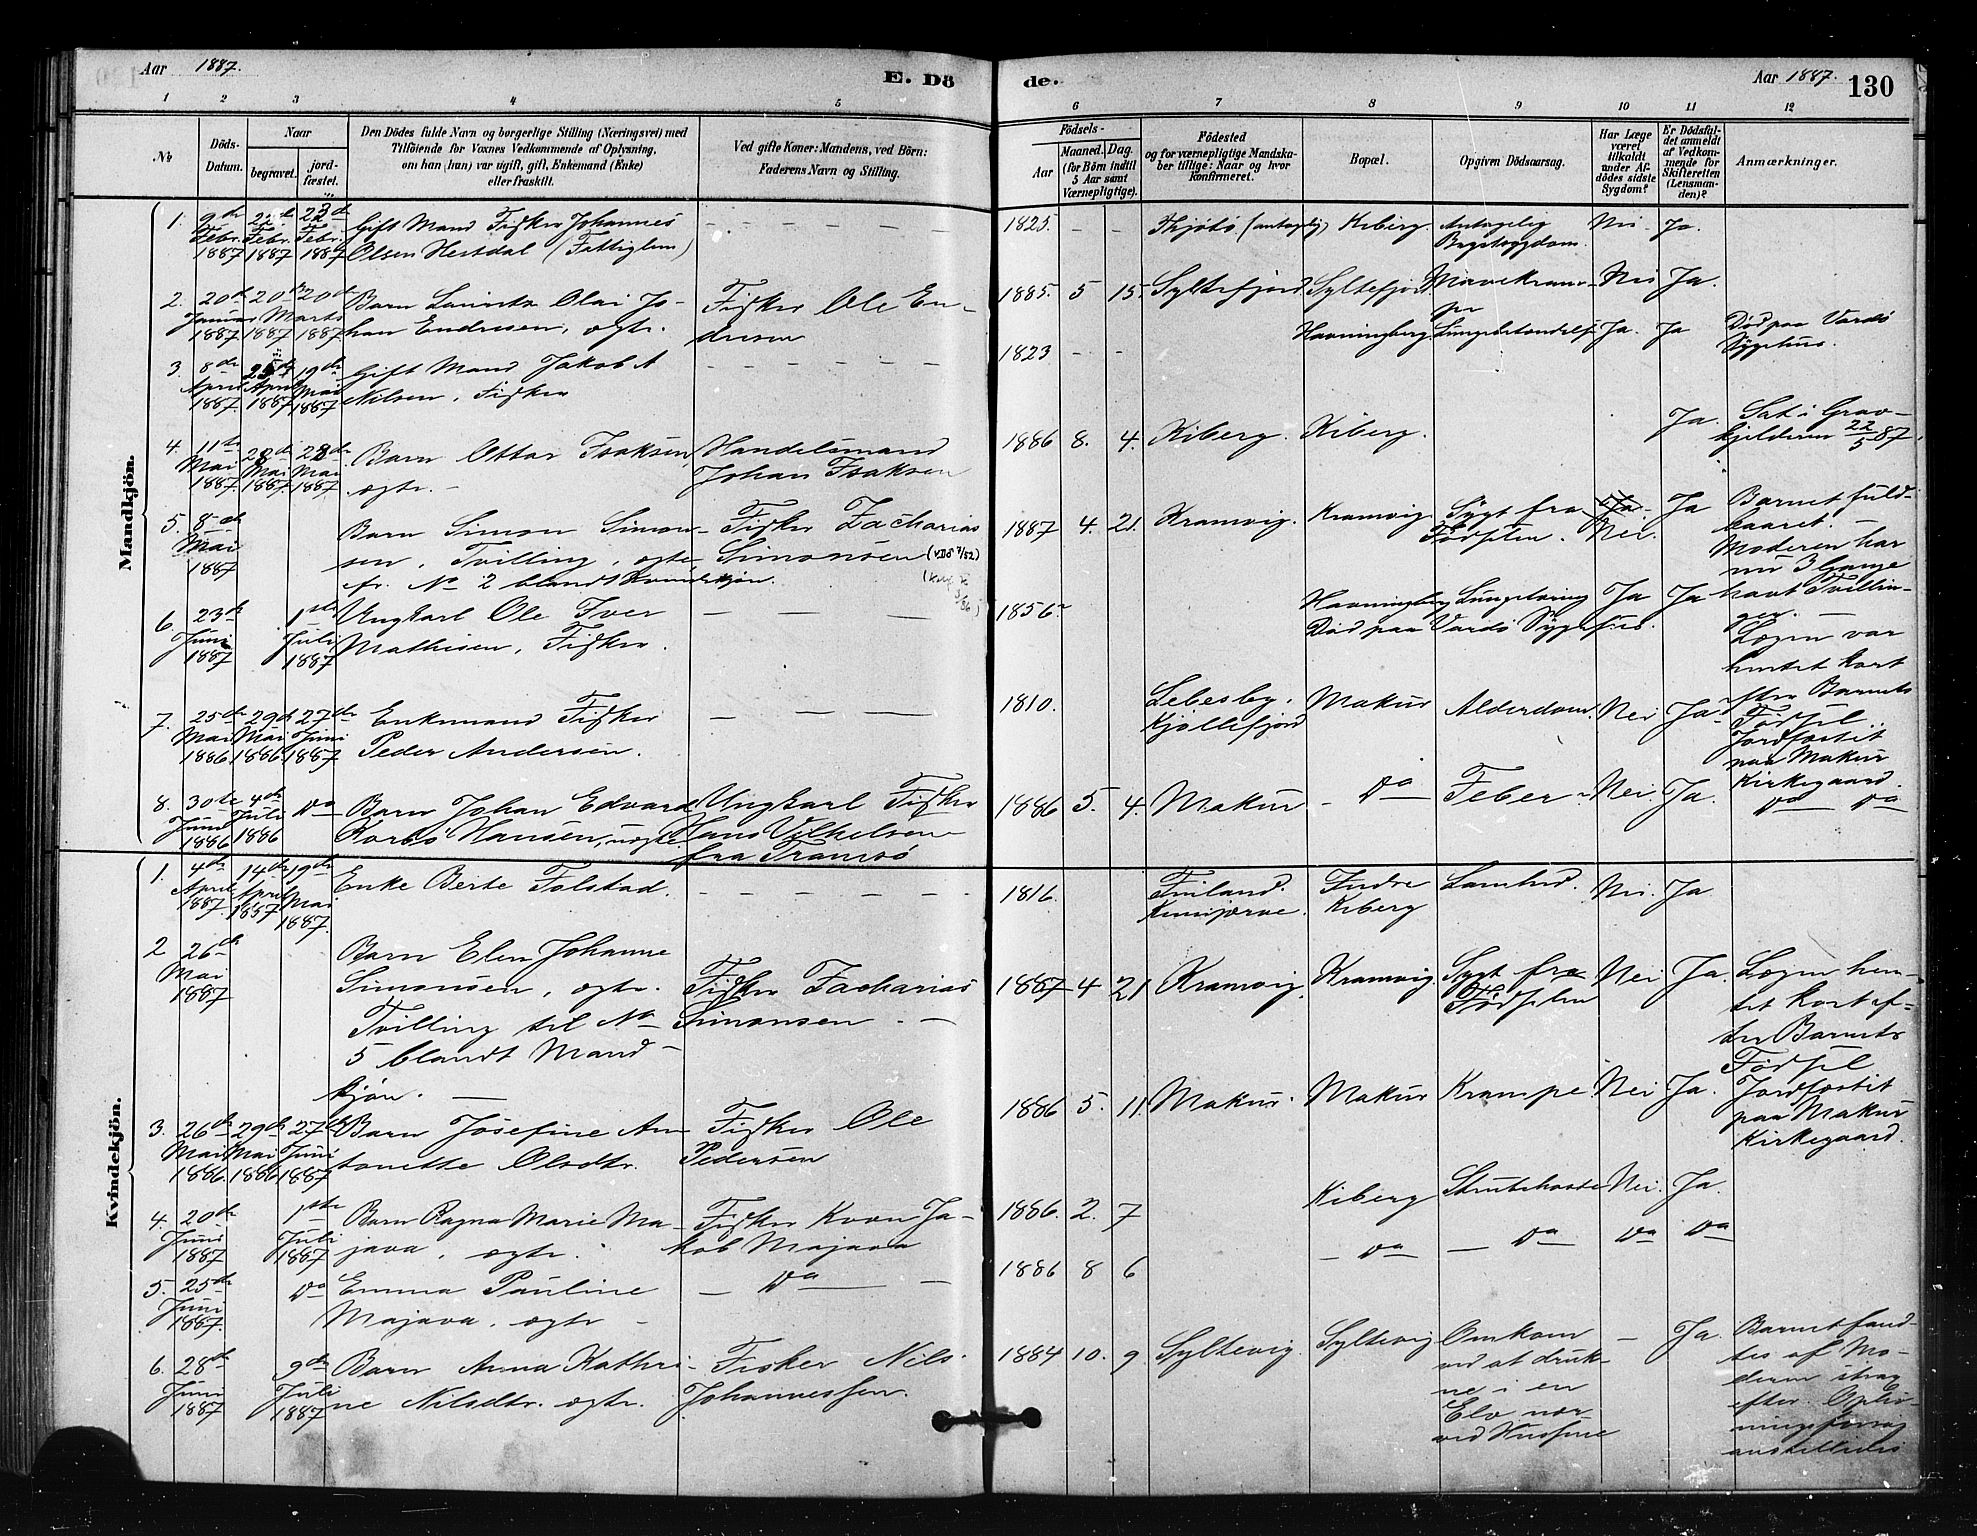 Aar 1887.
E. Dö
de.
Aar 1887.
130
1 2 3 4 5 6 7 8 9 10 11 12
No
Döds-
Datum.
Naar
begravet.
jord-
fæstet.
Den Dödes fulde Navn og borgerlige Stilling (Næringsvei) med
Tilföiende för Voxnes Vedkommende af Oplysning,
om han (hun) var ugift, gift, Enkemand (Enke)
eller fraskilt.
Ved gifte Koner: Mandens, ved Börn:
Faderens Navn og Stilling.
Födsels-
Aar
Maaned. Dag.
(for Börn indtil
5 Aar samt
Værnepligtige).
Födested
og for værnepligtige Mandska-
ber tillige: Naar og hvor
konfirmeret.
Bopæl.
Opgiven Dödsaarsag.
Har Læge
været
tilkaldt
under Af-
dödes sidste
Sygdom?
Er Dödsfal-
det anmeldt
af Vedkom-
mende for
Skifteretten
(Lensman-
den)?
Anmærkninger.
Mandkjön.
1. 9de Febr. 1887 Febr. 1887 Febr. 1887 Gift Mand Fisker Johannes
Olsen Hestdal (Fattiglem)
1825. Thjötö (antagelig) Kiberg. Antagelig
Brystsygdom. Nei. Ja.
2. 20de Januar 1887 20de Marts 1887 20de 1887 Barn Laurits Olai Jo-
han Endresen, ægte.
Fisker Ole En-
dresen
1885. 5 15. Syltefjord. Syltefjord. Mavekram-
pe Nei Ja.
3. 8de April 1887. April 1887 19de Mai 1887 Gift Mand Jakob A
Nilsen, Fisker
1823 Havningberg Lungebetændelse Ja. Ja Död paa Vardö
Sygehus.
4. 11te Mai 1887. 28de Mai 1887. 28de Mai 1887 Barn Ottar Isaksen,
ægte.
Handelsmand
Johan Isaksen
1886 8. 4. Kiberg. Kiberg. Ja. Sat i Grav-
kjelderen 22/5 87.
5. 8de Mai 1887 Barn Simon Simon-
sen, Tvilling, ægte
fr. No 2 blandt Kvindekjön.
Fisker Zacharias
Simonsen
1887 4. 21. Kramvig. Kramvig Sygt fra
Födselen. Nei. Ja Barnet fuld-
baaret. —
Moderen har
nu 3 Gange
havt Tvillin-
ger. —
Lægen var
hentet kort
efter Barnets
Födsel.
6. 23de Juni 1887 1ste Juli 1887 Ungkarl Ole Iver
Mathisen, Fisker.
1856 Havningberg Lungetæring Ja Ja
Död paa Vardö Sygehus.
7. 25de Mai 1886 29de Mai 1886. 27de Juni 1887 Enkemand Fisker
Peder Andersen.
1810. Lebesby,
Kjöllefjord Makur Alderdom. Nei Ja. Jordfæstet
paa Makur
Kirkegaard.
8. 30te Juni 1886 4de Juli 1886 Do Barn Johan Edvard
Hansen, uægte
Ungkarl Fisker
Hans Vilhelsen
fra Tromsö
1886 5. 4. Makur. Do Feber Nei. Ja. Do Do
Kvindekjön.
1. 4de April 1887. 14de April 1887 19de Mai 1887. Enke Berte Tolstad.
1816. Finland. Indre
Kiberg Lamhed. Nei. Ja
2 26de Mai 1887 Barn Elen Johanne
Simonsen, ægte.
Tvilling til No
5 blandt Mand-
kjön.
Fisker Zacharias
Simonsen.
1887 4 21 Kramvig. Kramvig. Sygt fra
Födselen Nei Ja. Lægen hen-
tet kort ef-
ter Barnets
Födsel
3. 26de Mai 1886. 29de Mai 1886 27de Juni 1887 Barn Josefine An
tonette Olsdtr.
Fisker Ole
Pedersen
1886 5. 11. Makur. Makur Krampe Nei Ja. Jordfæstet
paa Makur
Kirkegaard.
4. 20de Juni 1887 1ste Juli 1887 Barn Ragna Marie Ma-
java, ægte.
Fisker Kvæn Ja-
kob Majava
1886. 2. 7 Kiberg Strubehoste Nei. Ja.
5. 25de Juni 1887. Do Emma Pauline
Majava, ægte
Do
1886 8 6 Do Do Do Do
6. 28de Juni 1887 9de Juli 1887 Barn Anna Kathri-
ne Nilsdtr. ægte.
Fisker Nils
Johannessen.
1884 10. 9. Syltevig. Syltevig Omkom
ved at druk-
ne i en
Elv nær
ved Husene — Ja. Barnet fand-
tes af Mo-
deren strax
efter. Opliv-
ningsforsög
anstilledes